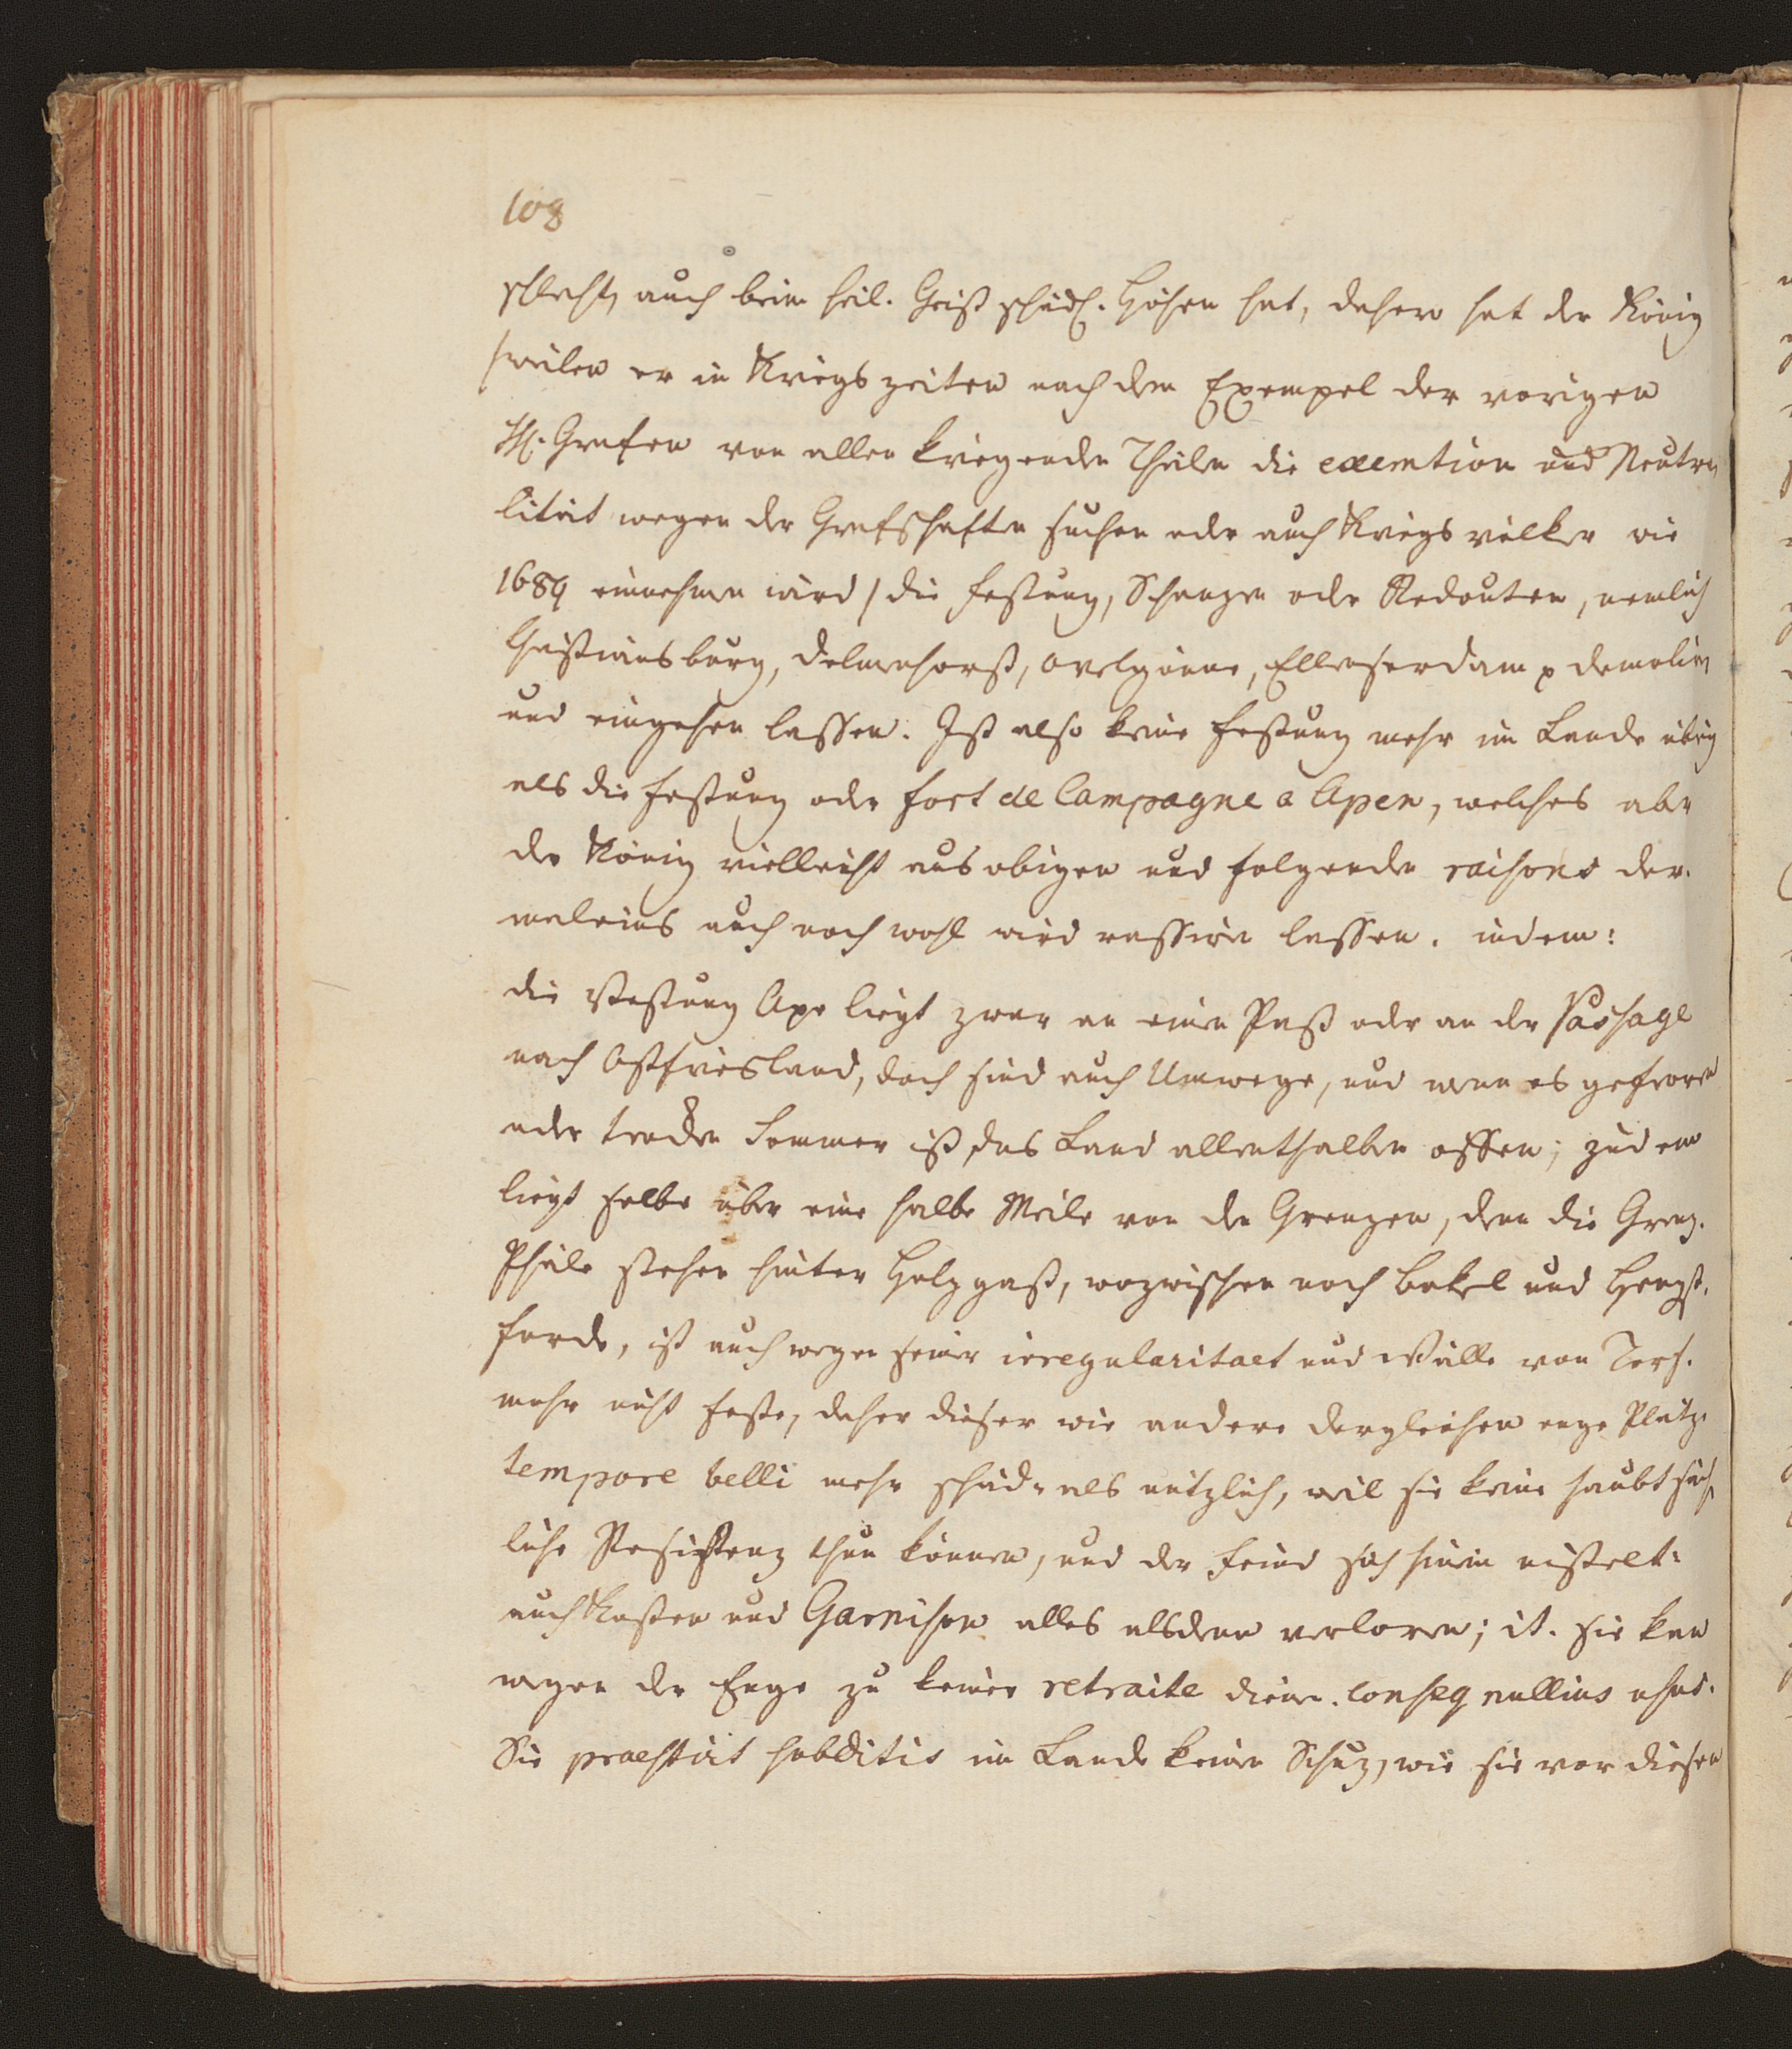 108
schlecht, auch beim heil. Geist schädl. Höhen hat, dahero hat der König
/weilen er in Kriegs zeiten nach dem Exempel der vorigen
HH. Grafen von allen kriegenden Theilen die exemtion und Neutra
litait wegen der Grafschaften suchen oder auch Kriegs völker wie
1689 einnehmen wird / die Festung, Schanzen oder Redouten, nemlich
Christiansburg, Delmenhorst, Ovelgönne, Ellenserdam p demoliren
und eingehen lassen. Ist also keine Festung mehr im Lande übrig
als die Festung oder fort de Campagne a Apen, welches aber
der König vielleicht aus obigen und folgenden raisons der.
maleins auch noch wohl wird rassiren lassen. indem:
die Vestung Ape liegt zwar an einen Pass oder an der Passage
nach Ostfriesland, doch sind auch Umwege, und wenn es gefroren
oder trocken Sommer ist, das Land allenthalben offen; zudem
liegt selbe über eine halbe Meile von den Grenzen, denn die Grenz.
Pfäle stehen hinter Holzgast, wozwischen noch Bokel und Hengst.
forde, ist auch wegen seiner irregularitaet und Wälle von Torf.
mohr nicht feste, daher dieser wie andere dergleichen enge Plätze
tempore belli mehr schäd= als nützlich, weil sie keine haubtsäch
liche Resistenz thun können, und der Feind sich hinin nistelt:
auch Kosten und Garnison alles alsdenn verloren; it. sie kan
wegen der Enge zu keiner retraite dienen. conseq nullius usus.
Sie praestirt subditis im Lande keinen Schuz, wie sie vor diesen